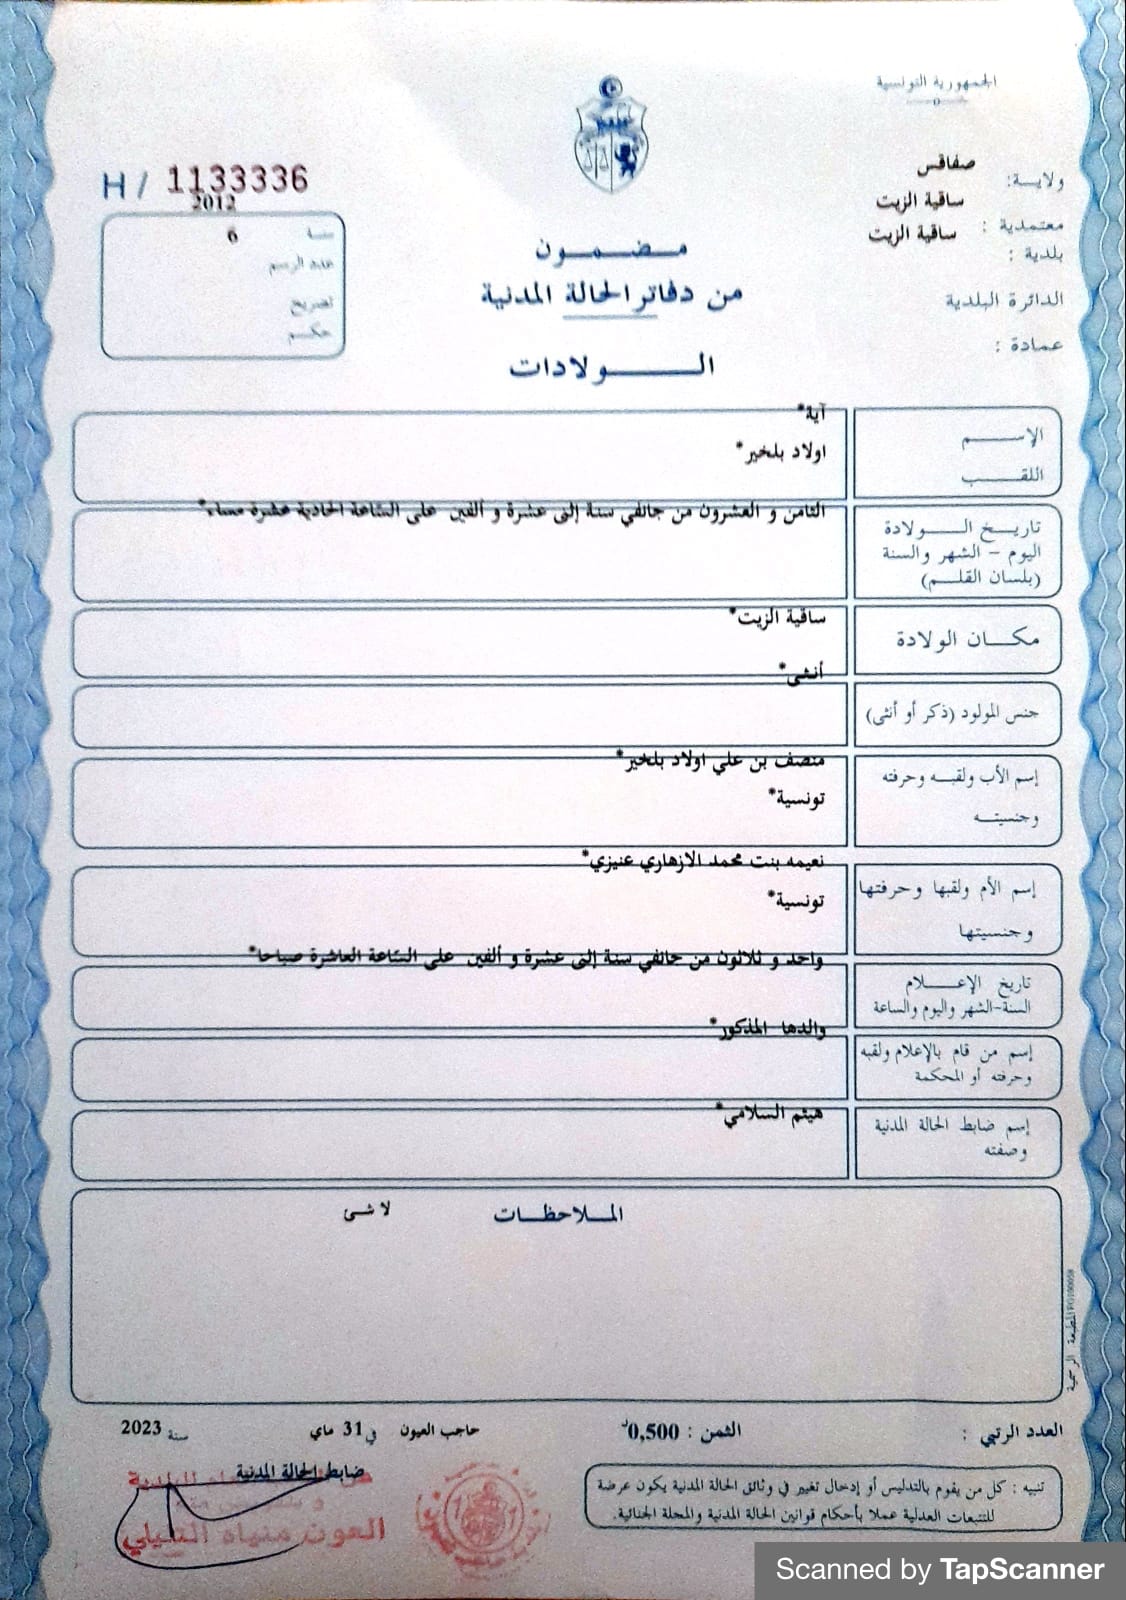 الجمهورية التونسية
ولاية: صفاقس
معتمدية : ساقية الزيت
بلدية : ساقية الزيت
الدائرة البلدية
عمادة :
H / 1133336
2012
سنة 6
عدد الرسم
تصريح
حكم
مضمون
من دفاتر الحالة المدنية
الولادات
الإسم آية*
اللقب اولاد بلخير*
تاريخ الولادة الثامن و العشرون من جانفي سنة إثنى عشرة و ألفين على السّاعة الحادية عشرة مساء*
اليوم – الشهر والسنة
(بلسان القلم)
مكان الولادة ساقية الزيت*
جنس المولود (ذكر أو أنثى) أنثى*
إسم الأب ولقبه وحرفته منصف بن علي اولاد بلخير*
وجنسيته تونسية*
إسم الأم ولقبها وحرفتها نعيمه بنت محمد الازهاري عنيزي*
وجنسيتها تونسية*
تاريخ الإعلام واحد و ثلاثون من جانفي سنة إثنى عشرة و ألفين على السّاعة العاشرة صباحا*
السنة-الشهر واليوم والساعة
إسم من قام بالإعلام ولقبه والدها المذكور*
وحرفته أو المحكمة
إسم ضابط الحالة المدنية هيثم السلامي*
وصفته
الملاحظات لا شئ
المطبعة الرسمية
العدد الرتبي :
الثمن : 0,500د
حاجب العيون في 31 ماي سنة 2023
ضابط الحالة المدنية
تنبيه : كل من يقوم بالتدليس أو إدخال تغيير في وثائق الحالة المدنية يكون عرضة
للتتبعات العدلية عملا بأحكام قوانين الحالة المدنية والمجلة الجنائية.
العون
Scanned by TapScanner